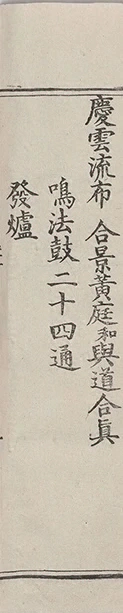 慶雲流布 合景黃庭和與道合眞
鳴法鼓二十四通
發爐